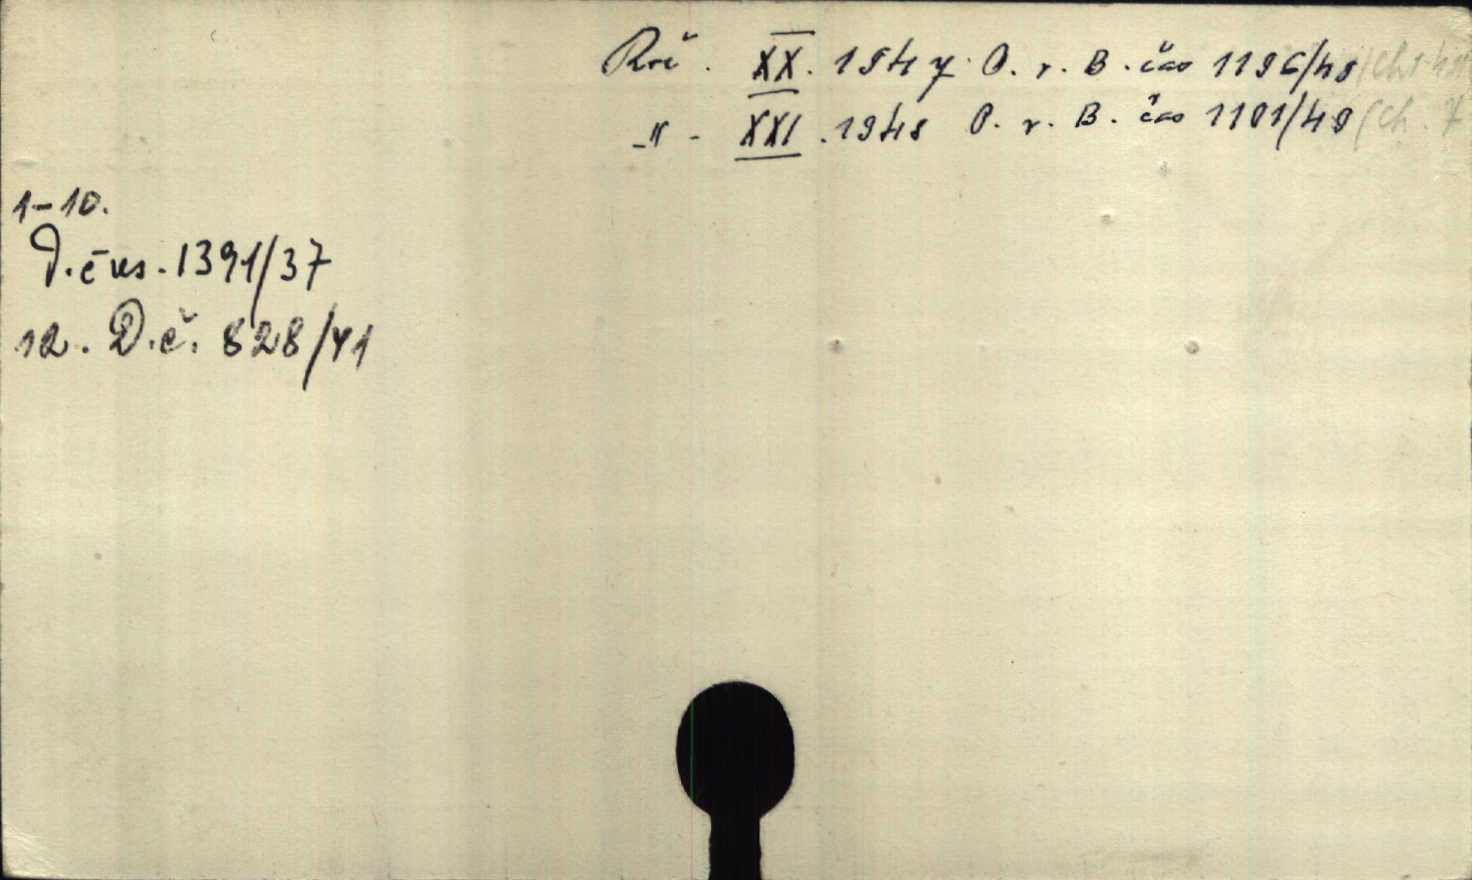 Roč. XX. 1947 P. v. B. čas 1196/48
-"- XXI. 1948 P. v. B. čas 1101/49
1-10.
D. čas. 1391/37
12. D.č. 828/41